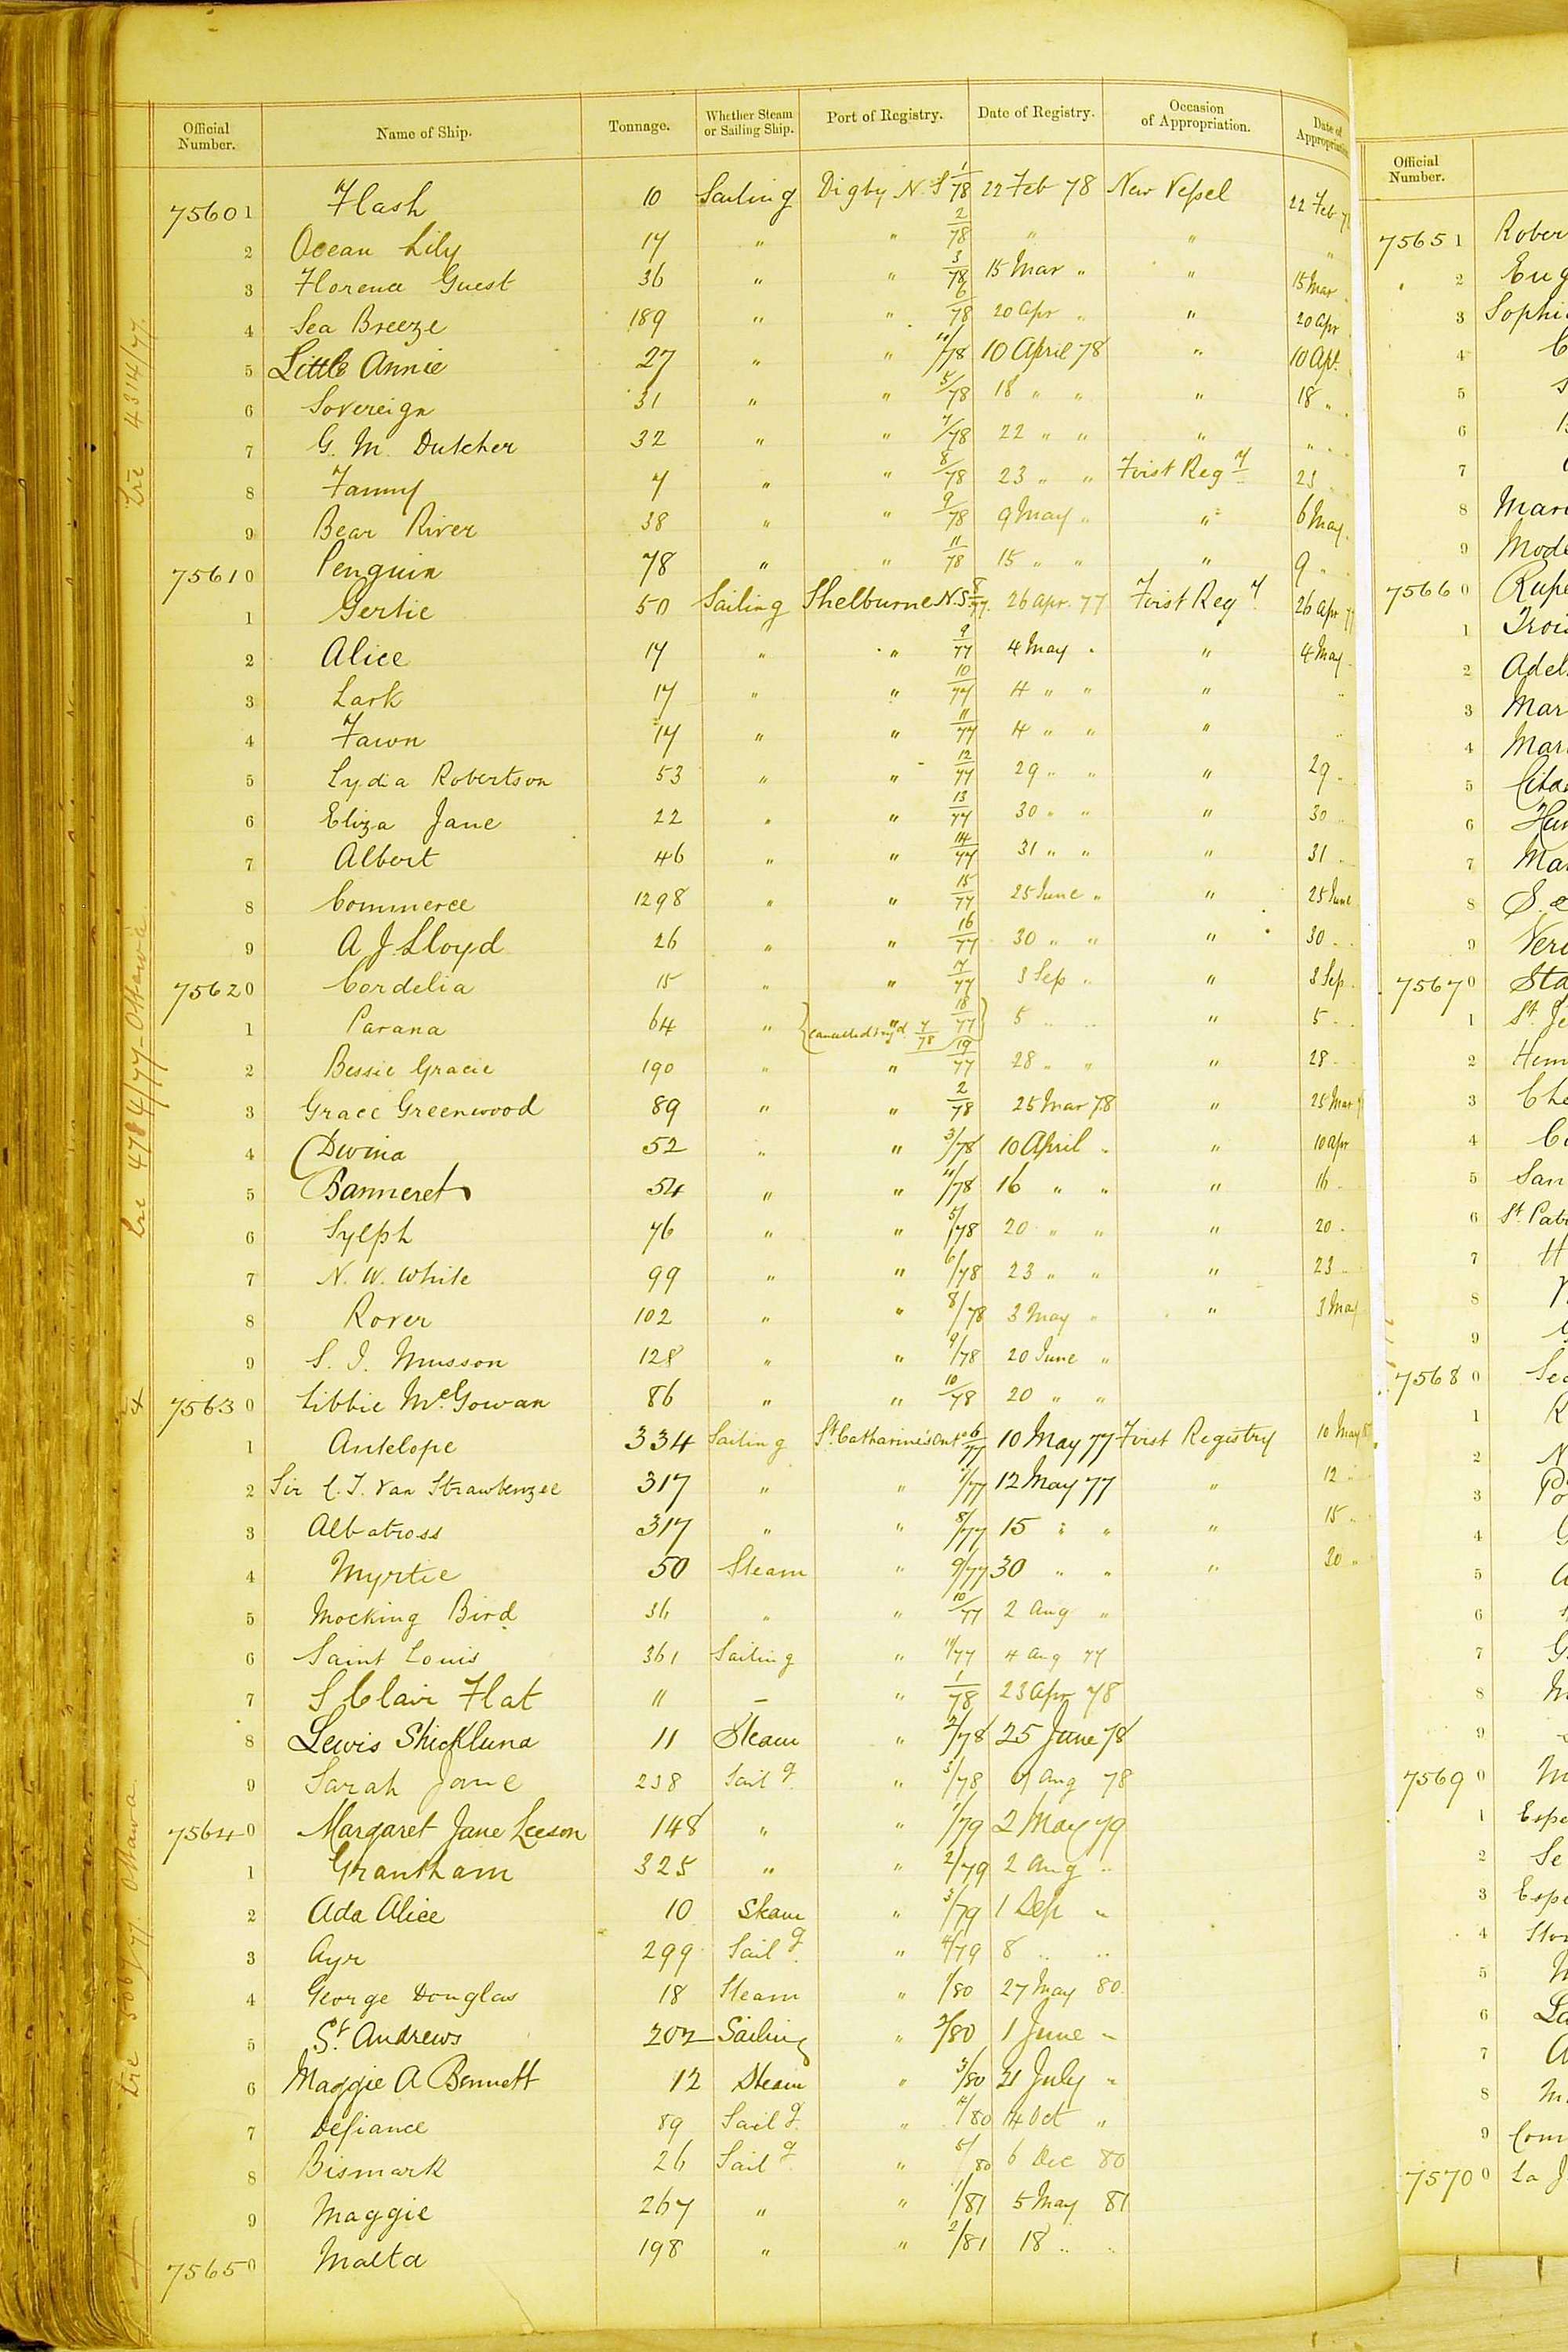 Official Number. Name of Ship. Tonnage. Whether Steam or Sailing Ship. Port of Registry. Date of Registry. Occasion of Appropriation. Date of Appropriation
75601 Flash 10 Sailing Digby N.S 1/78 22 Feb 78 New Vessel 22 Feb 78
2 Ocean Lily 17 " " 2/78 " " "
3 Florence Guest 36 " " 3/78 15 Mar " " 15 Mar
4 Sea Breeze 189 " " 6/78 20 Apr " " 20 Apr
5 Little Annie 27 " " 4/78 10 April 78 " 10 Apl.
6 Sovereign 31 " " 5/78 18 " " " 18 "
7 G. M. Dutcher 32 " " 7/78 22 " " " " "
8 Fanny 7 " " 8/78 23 " " First Regy 23 "
9 Bear River 38 " " 9/78 9 May " " 6 May
75610 Penguin 78 " " 11/78 15 " " " 9 "
1 Gertie 50 Sailing Shelburne N.S. 8/77 26 Apr. 77 First Regy 26 Apr 77
2 Alice 17 " " 9/77 4 May " " 4 May
3 Lark 17 " " 10/77 4 " " " "
4 Fawn 14 " " 11/77 4 " " " "
5 Lydia Robertson 53 " " 12/77 29 " " " 29 "
6 Eliza Jane 22 " " 13/77 30 " " " 30 "
7 Albert 46 " " 14/77 31 " " " 31 "
8 Commerce 1298 " " 15/77 25 June " " 25 June
9 A J. Lloyd 26 " " 16/77 30 " " " 30 "
75620 Cordelia 15 " " 7/77 3 Sep " " 3 Sep
1 Parana 64 " " 18/77 {cancelled 7/78} 5 " " " 5 "
2 Bessie Gracie 190 " " 19/77 28 " " " 28 "
3 Grace Greenwood 89 " " 2/78 25 Mar 78 " 25 Mar
4 Dwina 52 " " 3/78 10 April " " 10 Apr
5 Banneret 54 " " 4/78 16 " " " 16 "
6 Sylph 76 " " 5/78 20 " " " 20 "
7 N. W. White 99 " " 6/78 23 " " " 23 "
8 Rover 102 " " 8/78 3 May " " 3 May
9 S. J. Musson 128 " " 9/78 20 June "
75630 Libbie McGowan 86 " " 10/78 20 " "
1 Antelope 334 Sailing St. Catharine's Onto 6/77 10 May 77 First Registry 10 May
2 Sir C. T. Van Strawbenzee 317 " " 7/77 12 May 77 " 12 "
3 Albatross 317 " " 8/77 15 " " " 15 "
4 Myrtie 50 Steam " 9/77 30 " " " 30 "
5 Mocking Bird 36 " " 10/77 2 Aug "
6 Saint Louis 361 Sailing " 11/77 4 Aug 77
7 St Clair Flat " — " 1/78 23 Apr 78
8 Lewis Shickluna 11 Steam " 2/78 25 June 78
9 Sarah Jane 238 Sailg " 3/78 Aug 78
75640 Margaret Jane Leeson 148 " " 1/79 2 May 79
1 Grantham 325 " " 2/79 2 Aug "
2 Ada Alice 10 Steam " 3/79 1 Sep "
3 Ayr 299 Sailg " 4/79 8 " "
4 George Douglas 18 Steam " 1/80 27 May 80
5 St. Andrews 202 Sailing " 2/80 1 June "
6 Maggie A Bennett 12 Steam " 3/80 21 July "
7 Defiance 89 Sailg " 4/80 14 Oct "
8 Bismark 26 Sailg " 5/80 6 Dec 80
9 Maggie 267 " " 1/81 5 May 81
75650 Malta 198 " " 2/81 18 " "
Lre 4314/77.
Lre 4784/77 - Ottawa
Lre 5069/77. Ottawa
Official Number.
75651 Rober
2 Eug
3 Sophi
4
5
6
7
8 Mari
9 Mode
75660 Rupe
1 Trois
2 Adel
3 Mar
4 Mar
5 Cita
6
7 Ma
8 S.
9 Vero
75670 Sta
1 St. Je
2 Hem
3 Che
4 Co
5 San
6 St. Patr
7 H
8
9
75680 Sea
1 R
2 N
3 Po
4 G
5 a
6
7 G
8 M
9
75690 M
1 Espe
2 Se
3 Espe
4 Stor
5 M
6 La
7 A
8 M
9 Com
75700 La J